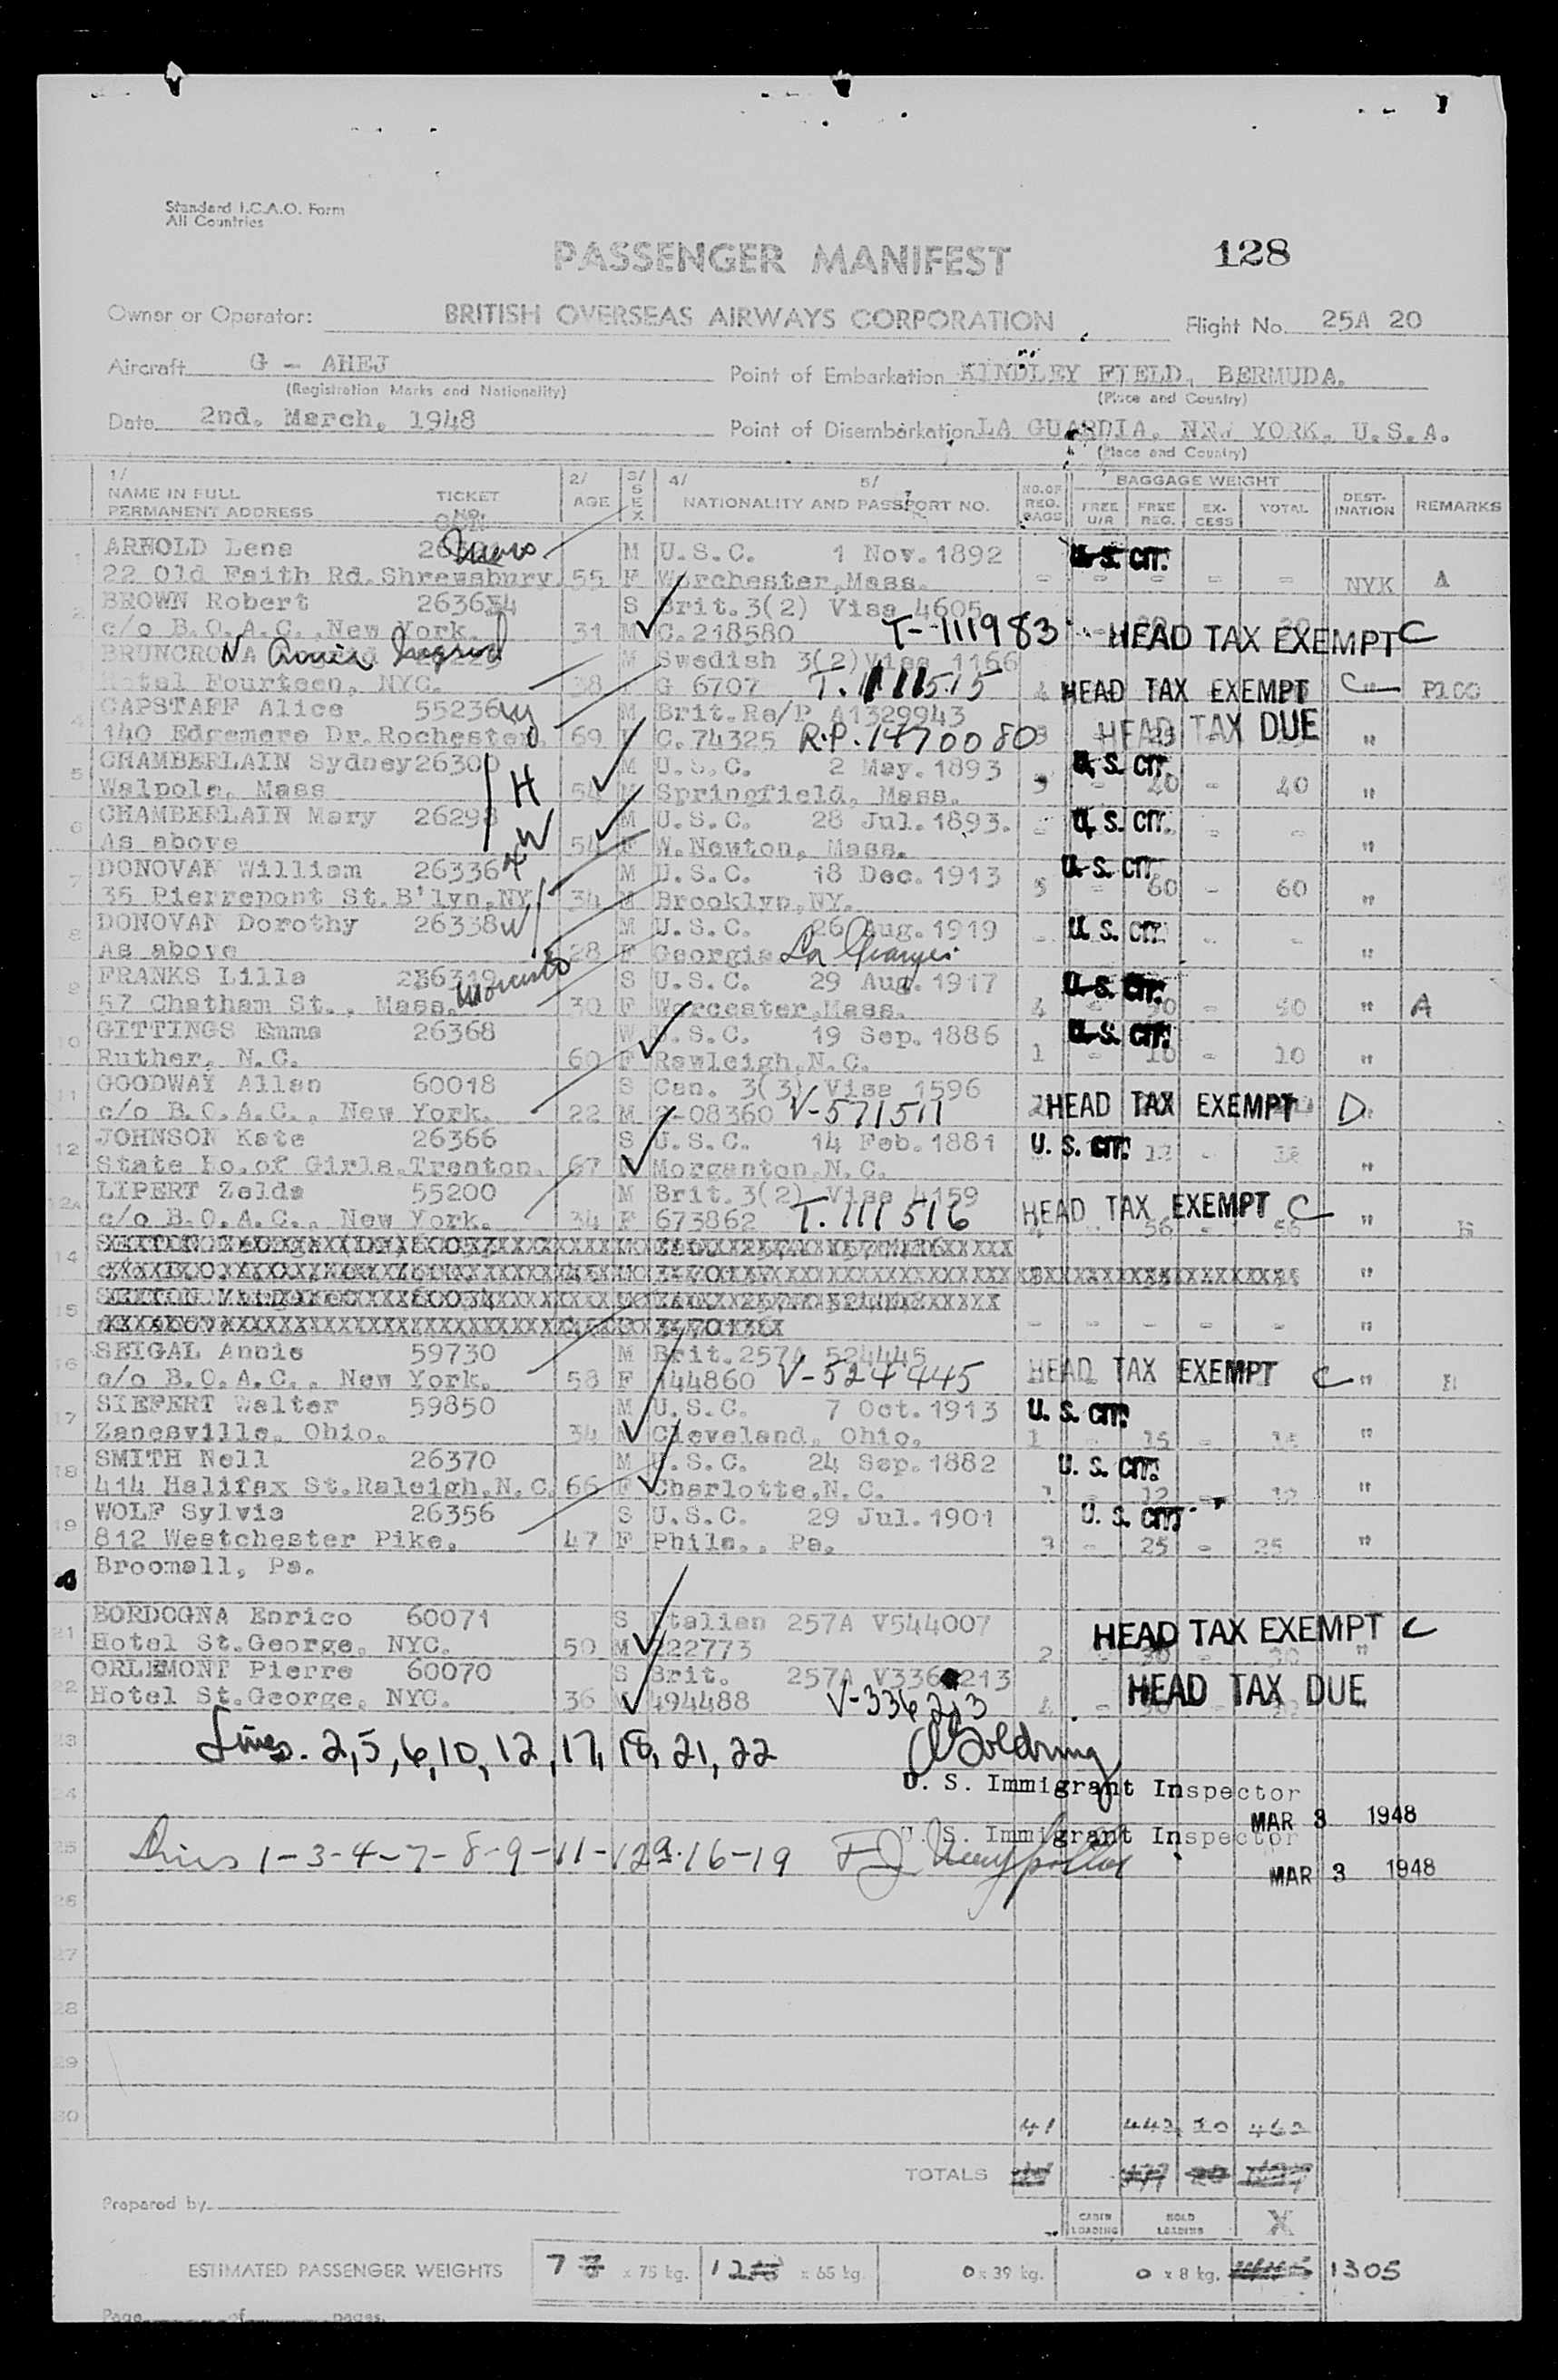 Standard I.C.A.O. Form
All Countries
PASSENGER MANIFEST 128
Owner or Operator: BRITISH OVERSEAS AIRWAYS CORPORATION Flight No. 25A 20
Aircraft G - AHEJ Point of Embarkation KINDLEY FIELD, BERMUDA.
(Registration Marks and Nationality) (Place and Country)
Date 2nd. March, 1948 Point of Disembarkation LA GUARDIA, NEW YORK, U.S.A.
(Place and Country)
1/ 2/ 3/ 4/ 5/ BAGGAGE WEIGHT
NAME IN FULL TICKET AGE SEX NATIONALITY AND PASSPORT NO. NO. OF REG. BAGS FREE U/R FREE REG. EX-CESS TOTAL DEST-INATION REMARKS
PERMANENT ADDRESS NO.
1 ARNOLD Lena M U.S.C. 1 Nov. 1892 U.S. CIT.
22 Old Faith Rd. Shrewsbury. 55 F Worchester, Mass. - - - - - NYK A
2 BROWN Robert S Brit. 3(2) Visa 4605
c/o B.O.A.C., New York. 31 M C.218580 T-111983 HEAD TAX EXEMPT C
M Swedish 3(2) Visa 1166
Hotel Fourteen, NYC. 38 F G 6707 T.111515 4 HEAD TAX EXEMPT C " P100
4 CAPSTAFF Alice 55236 M Brit. Re/P A1329943
140 Edgemere Dr. Rochester. 69 F C.74325 R.P. 1470080 3 HEAD TAX DUE "
5 CHAMBERLAIN Sydney 26300 H M U.S.C. 2 May. 1893 U.S. CIT.
Walpole, Mass 54 M Springfield, Mass. - 40 - 40 "
6 CHAMBERLAIN Mary 26298 W M U.S.C. 28 Jul. 1893. U.S. CIT.
As above 54 F W. Newton, Mass. - - - "
7 DONOVAN William 26336 M U.S.C. 18 Dec. 1913 U.S. CIT.
35 Pierrepont St. B'lyn, NY 34 M Brooklyn, NY. 5 - 60 - 60 "
8 DONOVAN Dorothy 26338 W M U.S.C. 26 Aug. 1919 U.S. CIT.
As above 28 F Georgia - - - "
9 FRANKS Lilla 26319 S U.S.C. 29 Aug. 1917 U.S. CIT.
57 Chatham St., Mass. 30 F Worcester, Mass. 4 - - " A
10 GITTINGS Emma 26368 W U.S.C. 19 Sep. 1886 U.S. CIT.
Ruther, N.C. 60 F Rawleigh, N.C. 1 - 10 - 10 "
11 GOODWAY Allan 60018 S Can. 3(3) Visa 1596
c/o B.O.A.C., New York. 22 M 2-08360 V-571511 2 HEAD TAX EXEMPT D "
12 JOHNSON Kate 26366 S U.S.C. 14 Feb. 1881 U.S. CIT.
State Ho. of Girls, Trenton. 67 F Morganton, N.C. 12 - 12 "
12A LIPERT Zelda 55200 M Brit. 3(2) Visa 4159
c/o B.O.A.C., New York. 34 F 673862 T.111516 HEAD TAX EXEMPT C 56 - 56 "
14 "
15 - - - - - "
16 SEIGAL Annie 59730 M Brit. 257A 524445
c/o B.O.A.C., New York. 58 F 144860 V-524445 HEAD TAX EXEMPT C "
17 SIEFERT Walter 59850 M U.S.C. 7 Oct. 1913 U.S. CIT.
Zanesville, Ohio. 34 M Cleveland, Ohio. 1 - 15 - 15 "
18 SMITH Nell 26370 M U.S.C. 24 Sep. 1882 U.S. CIT.
414 Halifax St. Raleigh, N.C. 66 F Charlotte, N.C. 1 - 12 - 12 "
19 WOLF Sylvia 26356 S U.S.C. 29 Jul. 1901 U.S. CIT.
812 Westchester Pike. 47 F Phila., Pa. 3 - 25 - 25 "
Broomall, Pa.
21 BORDOGNA Enrico 60071 S Italian 257A V544007
Hotel St. George, NYC. 50 M 222773 2 HEAD TAX EXEMPT C "
22 ORLEMONT Pierre 60070 S Brit. 257A V336213
Hotel St. George, NYC. 36 M 494488 V-336213 4 - HEAD TAX DUE
23 Lines. 2,5,6,10,12,17,18,21,22
24 U. S. Immigrant Inspector
MAR 3 1948
25 U. S. Immigrant Inspector
Lines 1-3-4-7-8-9-11-12a-16-19
MAR 3 1948
26
27
28
29
30 41 442 20 462
TOTALS
Prepared by
CABIN LOADING HOLD LOADING X
ESTIMATED PASSENGER WEIGHTS 7 x 75 kg. 12 x 65 kg. 0 x 39 kg. 0 x 8 kg. 1305
Page of pages.